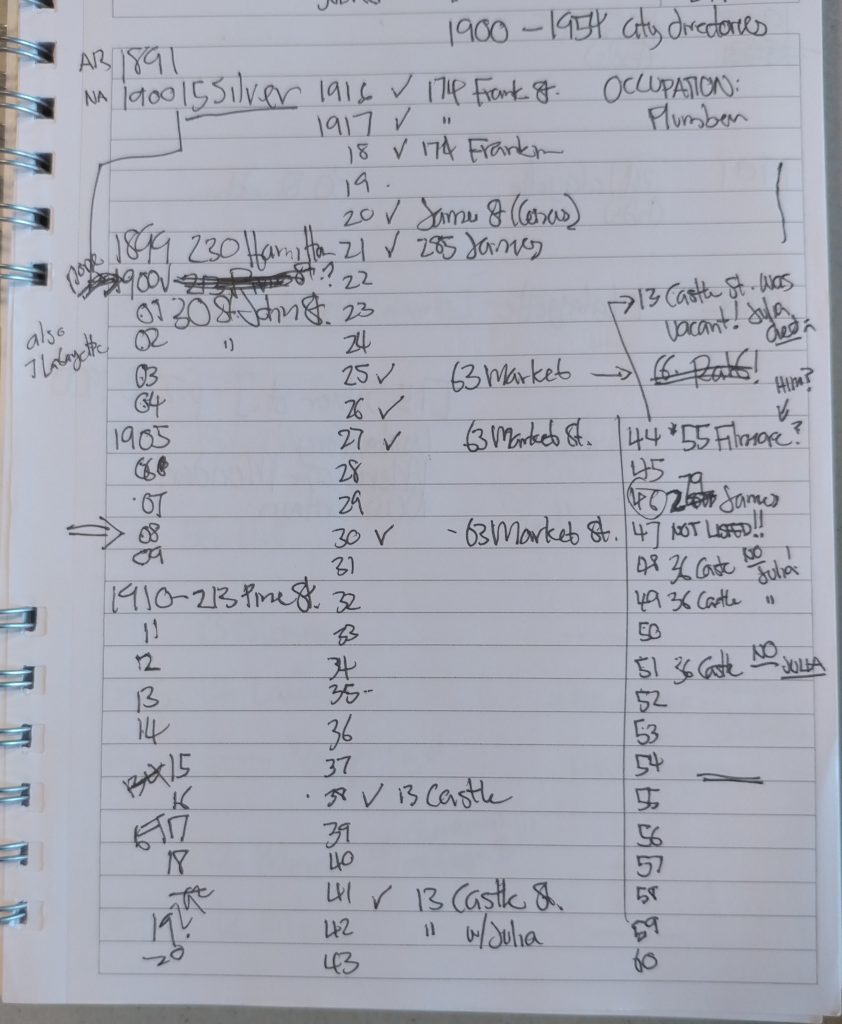 1900 - 1954 City directories
AB 1891
NA 1900 15 Silver 1916 ✓ 174 Frank St. OCCUPATION:
1917 ✓ " Plumber
18 ✓ 174 Frank
19 .
20 ✓ James St (Census)
1899 230 Hamilton 21 ✓ 285 James
nope 1900 St.? 22
→ 13 Castle St. was
01 30 St. John St. 23
vacant! Julia
died
also
7 Lafayette
02 " 24
03 25 ✓ 63 Market →
Him?
04 26 ✓
1905 27 ✓ 63 Market St. 44 * 55 Filmore?
06 28 45
.07 29 46 279 James
⇒ 08 30 ✓ - 63 Market St. 47 NOT LISTED!!
09 31 48 36 Castle NO Julia!
1910 - 213 Pine St. 32 49 36 Castle "
11 33 50
12 34 51 36 Castle NO JULIA
13 35 -- 52
14 36 53
15 37 54
16 . 38 ✓ 13 Castle 55
17 39 56
18 40 57
41 ✓ 13 Castle St. 58
19? 42 " w/Julia 59
-20 43 60